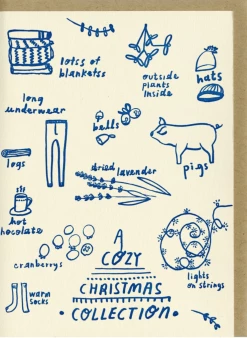 lotss of
blanketss
outside
plants
inside
hats
long
underwear
bells
pigs
logs
dried lavender
hot
chocolate
cranberrys
lights
on strings
warm
socks
A
COZY
CHRISTMAS
• COLLECTION •